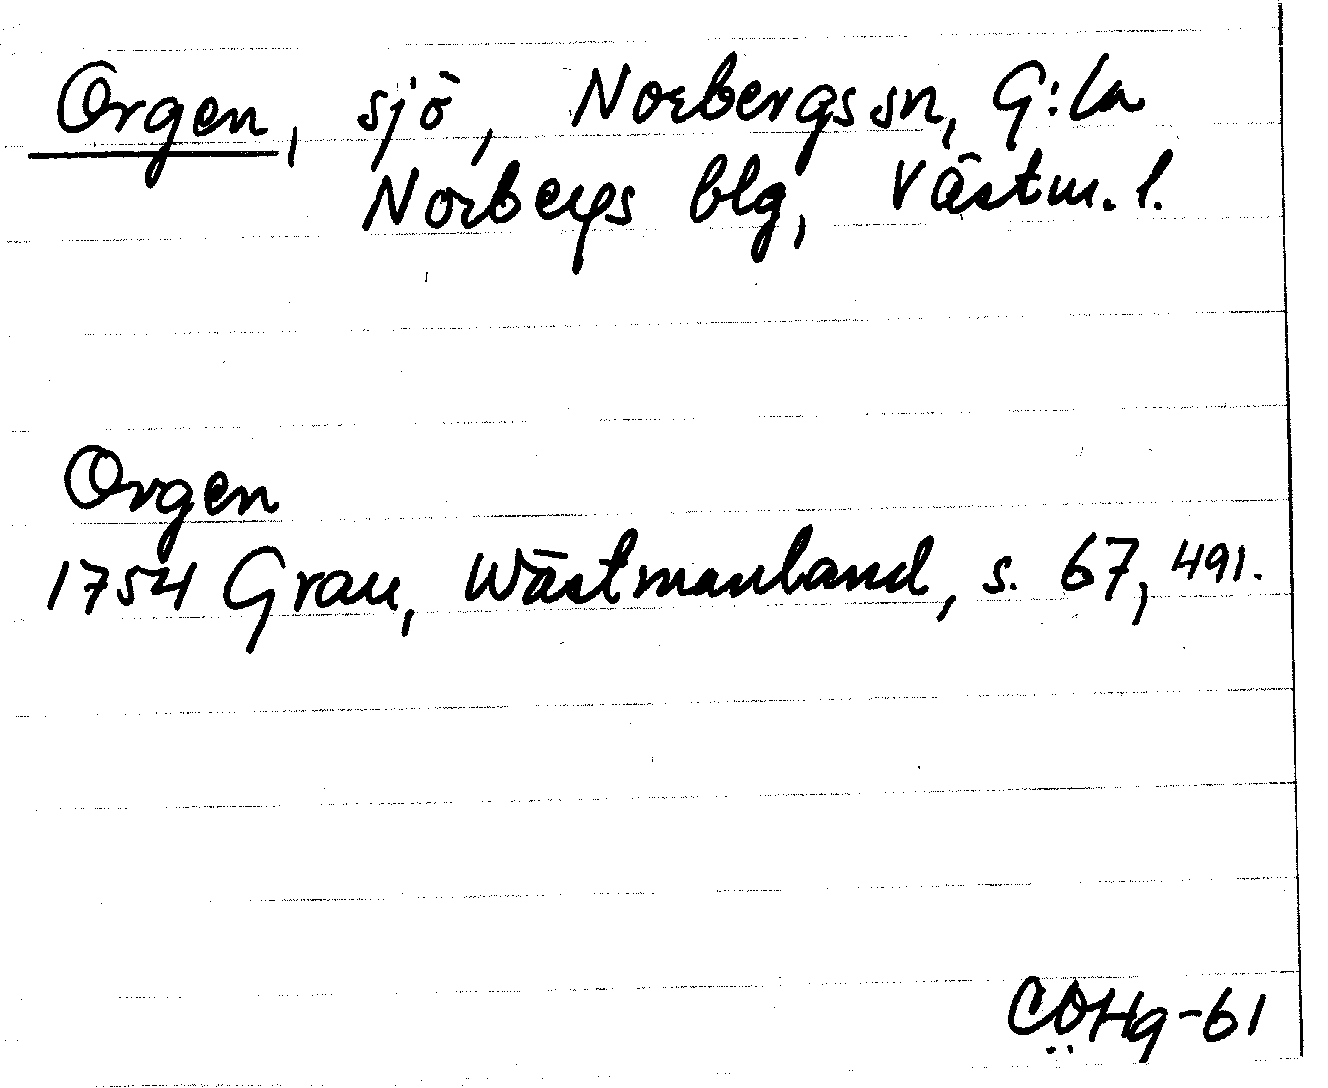 Orgen, sjö, Norbergs sn, G:la
Norbergs blg, Västm. l.
Orgen
1754 Grau, Wästmanland, s. 67, 491.
CÖHg-61